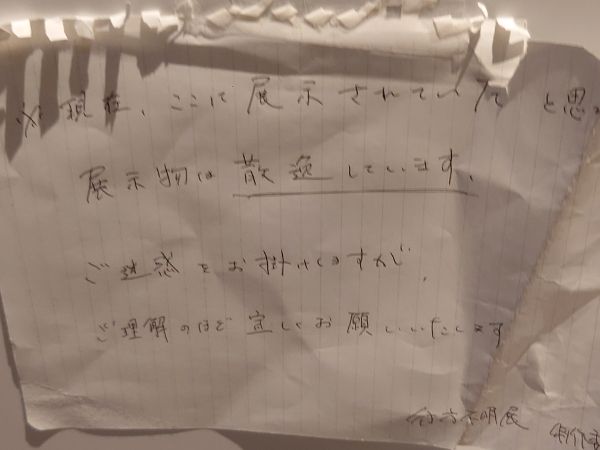 ※現在、ここに展示されていたと思
展示物は散逸しています。
ご迷惑をお掛けしますが、
ご理解のほど宜しくお願いいたします
行方不明展 制作委